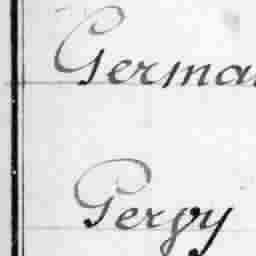 Germa
Gergy